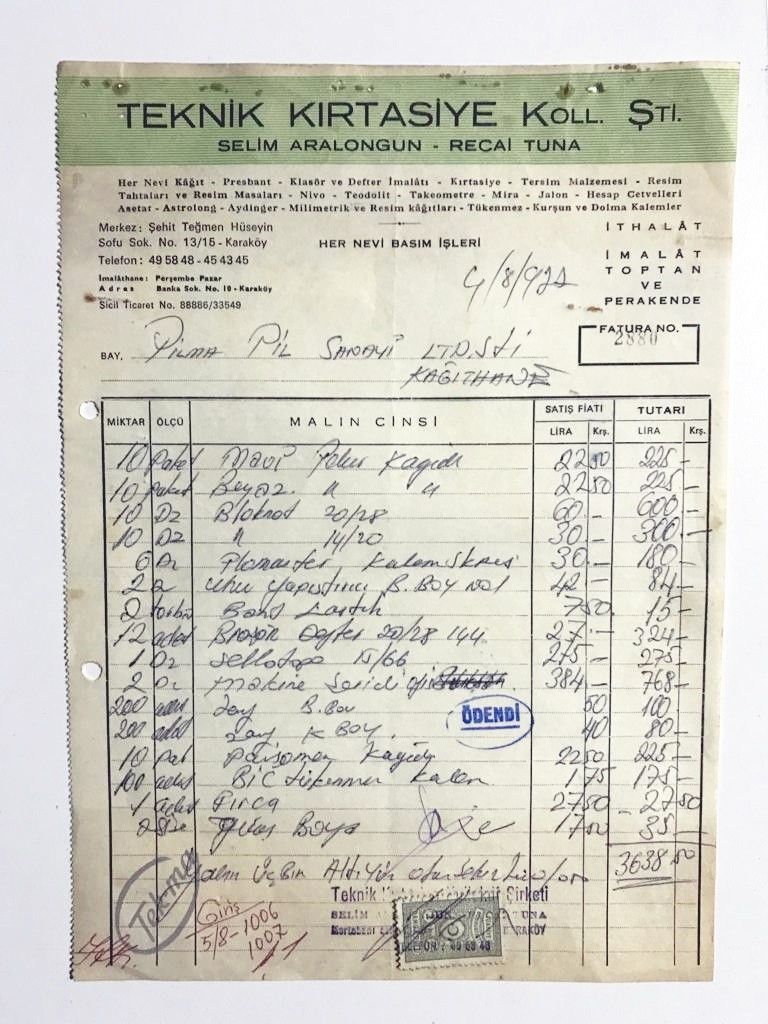 TEKNİK KIRTASİYE KOLL. ŞTİ.
SELİM ARALONGUN - RECAİ TUNA
Her Nevi Kâğıt - Presbant - Klasör ve Defter İmalâtı - Kırtasiye - Tersim Malzemesi - Resim
Tahtaları ve Resim Masaları - Nivo - Teodolit - Takeometre - Mira - Jalon - Hesap Cetvelleri
Asetat - Astrolong - Aydinger - Milimetrik ve Resim kâğıtları - Tükenmez - Kurşun ve Dolma Kalemler
Merkez: Şehit Teğmen Hüseyin
Sofu Sok. No. 13/15 - Karaköy
Telefon: 49 58 48 - 45 43 45
İmalâthane: Perşembe Pazar
Adres Banka Sok. No. 10 - Karaköy
Sicil Ticaret No. 88886/33549
HER NEVİ BASIM İŞLERİ
4/8/972
İTHALÂT
İMALÂT
TOPTAN
VE
PERAKENDE
FATURA NO.
2880
BAY, Pilma Pil Sanayi LTD.Şti
KAĞITHANE
MİKTAR ÖLÇÜ MALIN CİNSİ SATIŞ FİATI TUTARI
LİRA Krş. LİRA Krş.
10 Paket Mavi Pelur Kağıdı 22 50 225 -
10 Paket Beyaz " " 22 50 225 -
10 Dz Bloknot 20/28 60 - 600 -
10 Dz " 14/20 30 - 300 -
6 Dz 30 - 180 -
2 Dz Uhu Yapıştırıcı B. BOY No1 42 - 84 -
2 Bant Lastik 7 50 15 -
12 adet Defter 20/28 144. 27 - 324 -
1 Dz Sellotape 15/66 275 - 275 -
2 Dz Makine Şeridi 384 - 768 -
200 adet Zarf B. Boy 50 100 -
200 adet Zarf K BOY. 40 80 -
ÖDENDİ
10 Pak Parşömen Kağıdı 22 50 225 -
100 adet BİC tükenmez Kalem 1 75 175 -
1 adet Fırça 27 50 27 50
2 Şişe Boya 17 50 35 -
3638 50
Yalnız Üçbin Altıyüz otuzsekiz lira
Tekma
Giriş
5/8-1006
1007
Teknik Şirketi
SELİM TUNA
TELEFON: 49 58 48 KARAKÖY